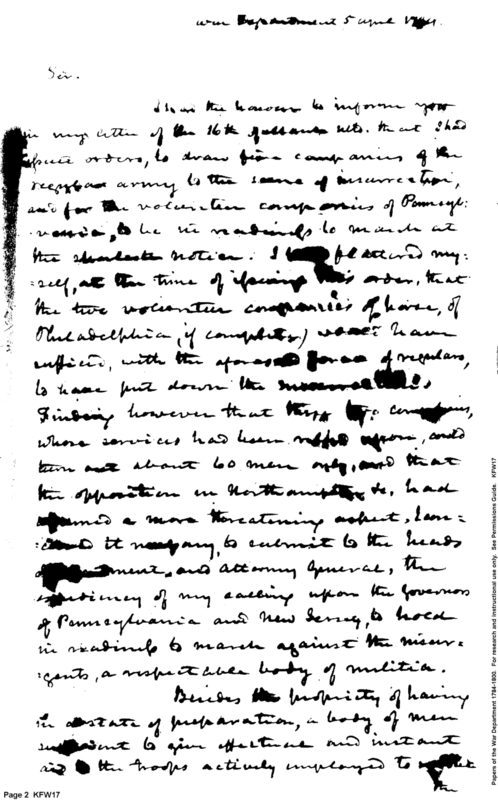 War Department 5 April
Sir.
I had the honour to inform you
in my letter of the 16th ulto. that I had
orders, to draw five companies of the
regular army to the scene of insurrection,
and for the volunteer companies of Pennsyl-
vania, to be in readiness to march at
the shortest notice. I flattered my-
=self, at the time of issuing this order, that
the two volunteer companies of horse, of
Philadelphia, if complete, have
sufficed, with the force of regulars,
to have put down the
Finding however that companies,
whose services had been upon, could
turn out about 60 men only, and that
the opposition in Northampton &c. had
assumed a more threatening aspect, I con-
it to submit to the heads
and Attorney General, the
expediency of my calling upon the Governors
of Pennsylvania and New Jersey, to hold
in readiness to march against the insur-
=gents, a respectable body of militia.
Besides the propriety of having
in a state of preparation, a body of men
sufficient to give effectual and instant
aid to the troops actively employed to
the
Page 2 KFW17
Papers of the War Department 1784-1800. For research and instructional use only. See Permissions Guide. KFW17